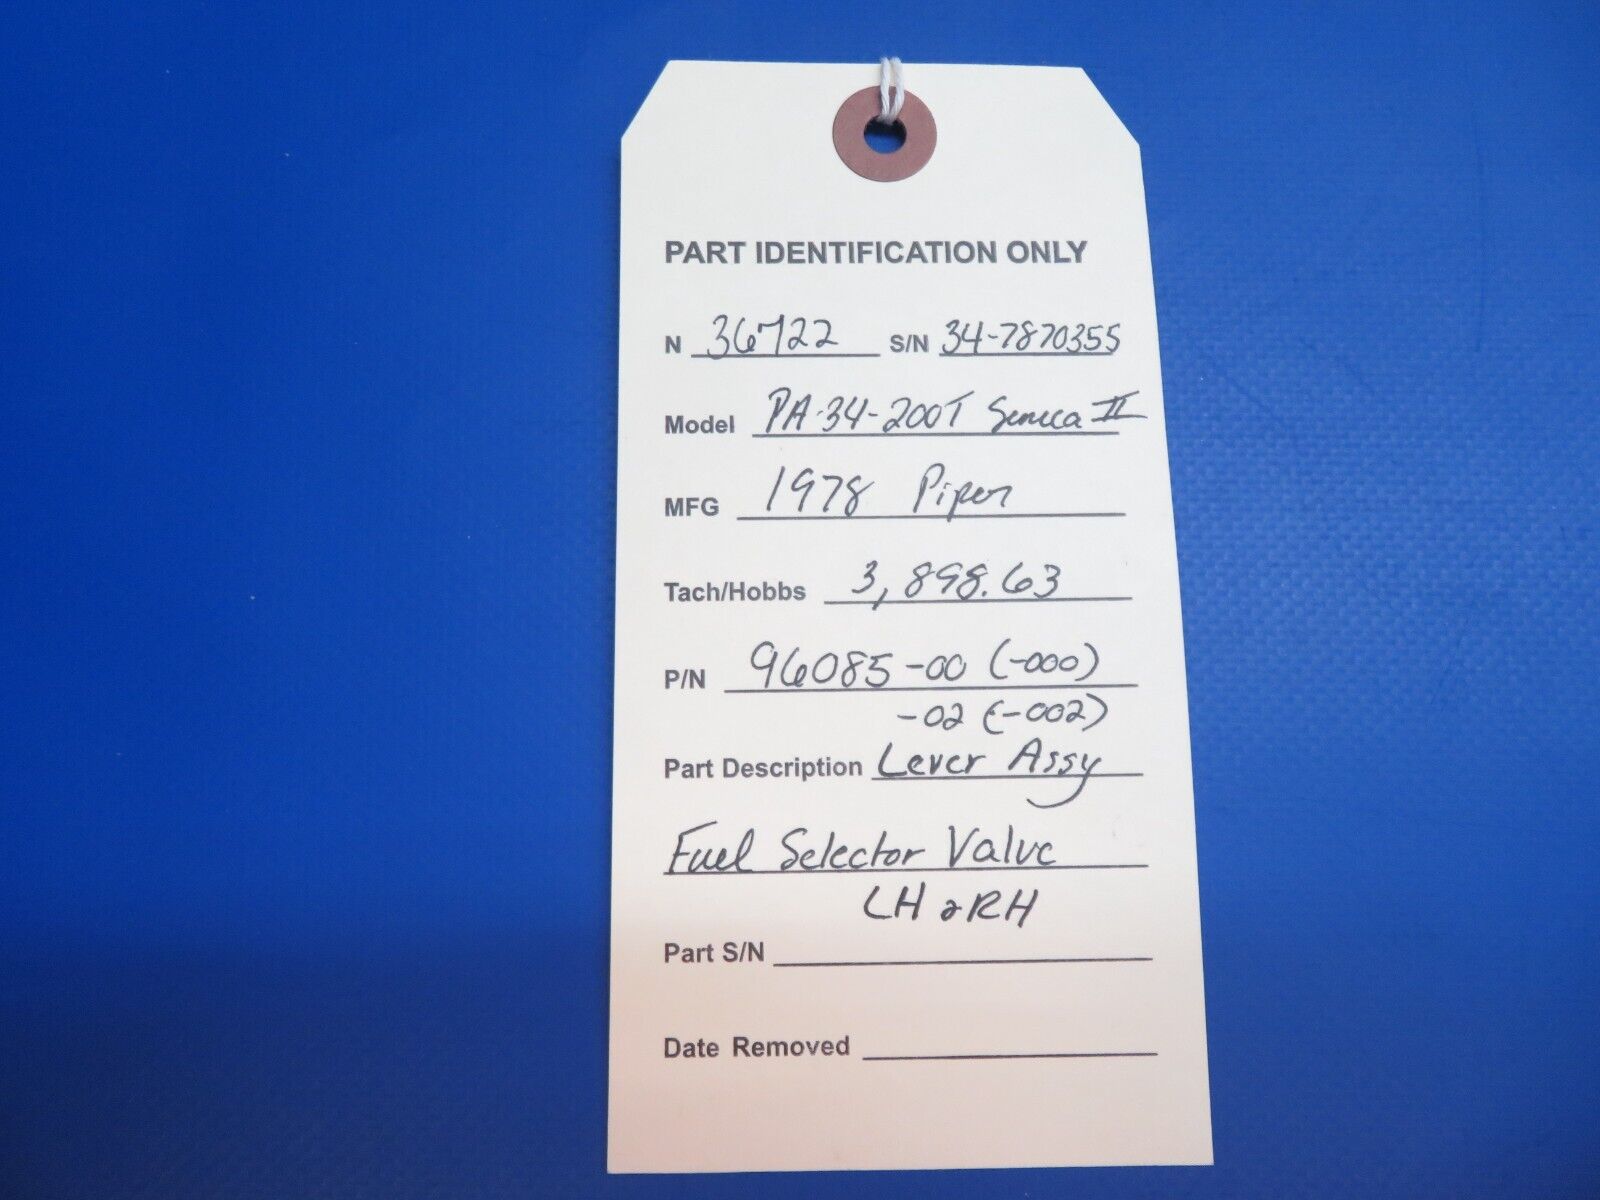 PART IDENTIFICATION ONLY
N 36722 S/N 34-7870355
Model PA-34-200T Seneca II
MFG 1978 Piper
Tach/Hobbs 3,898.63
P/N 96085-00 (-000)
-02 (-002)
Part Description Lever Assy
Fuel Selector Valve
LH & RH
Part S/N
Date Removed